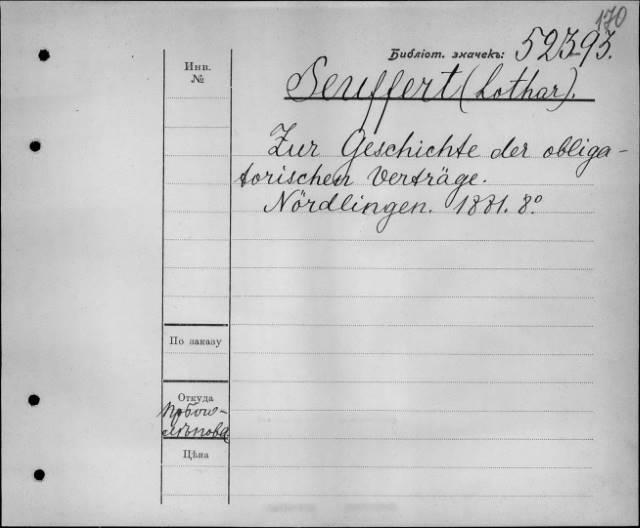 170
Библіот. значекъ: 52393.
Инв.
№
Seuffert (Lothar).
Zur Geschichte der obliga-
torischen Verträge.
Nördlingen. 1881. 8°
По заказу
Откуда
Цѣна